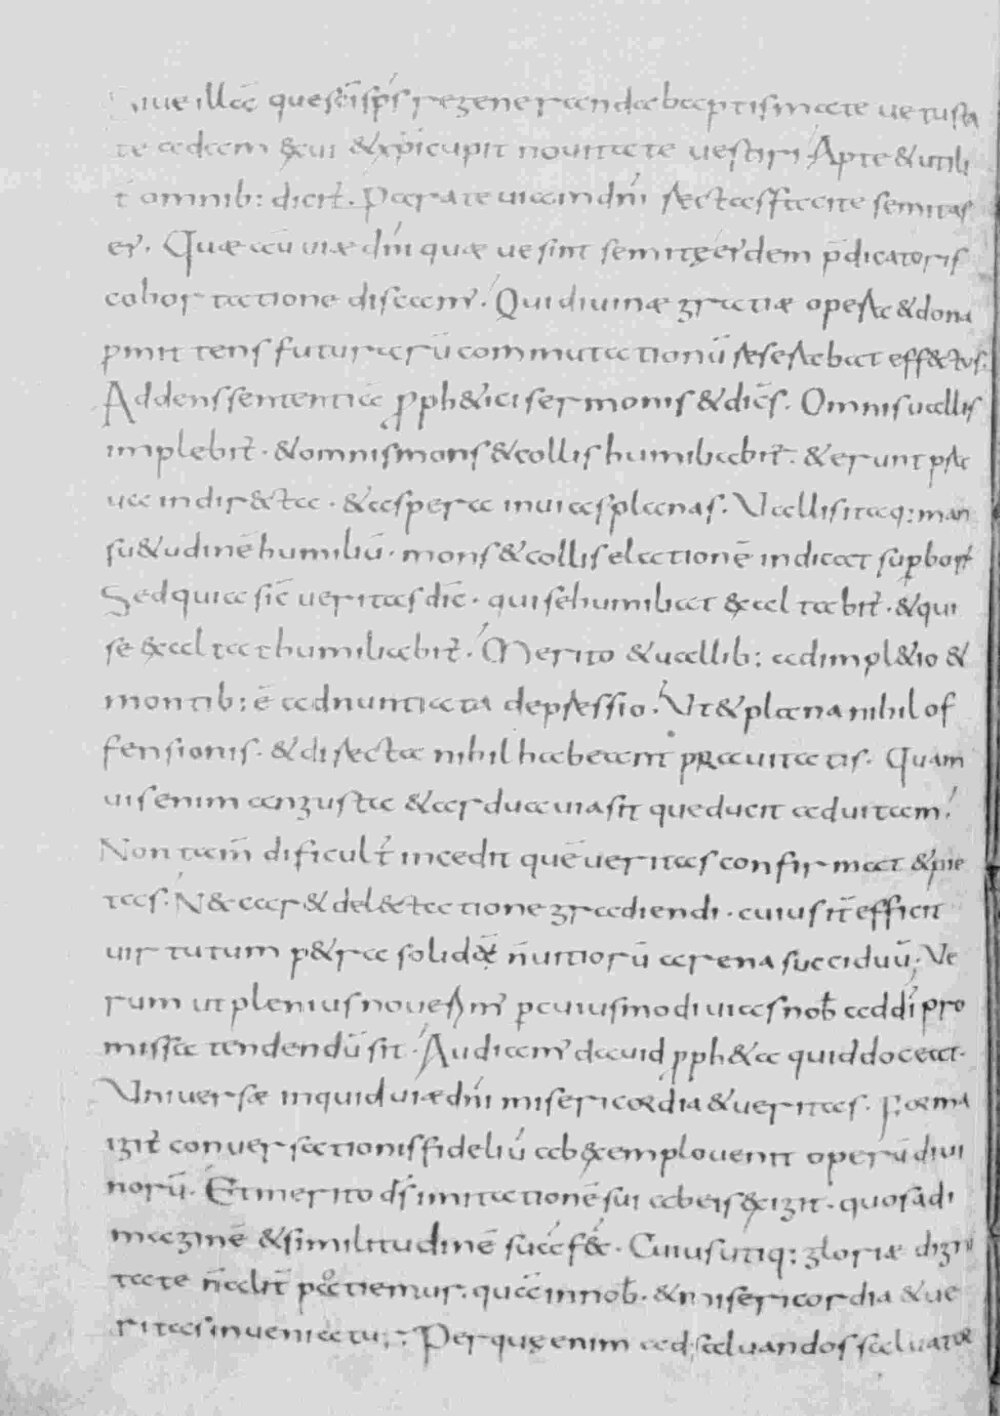 siue illa que sc̄i sp̄s regeneranda baptismate uetusta
te adam exui & xp̄i cupit nouitate uestiri. Apte & utili
t omnib: dicit̄. Parate uiam dn̄i rectas facite semitas
ei᾽. Quæ aū uiæ dn̄i quæ ue sint semitę ei᾽dem p̄dicatoris
cohortatione discam᾽. Qui diuinæ gratiæ opera & dona
pmittens futurarū commutationū reserabat effectus.
Addens sententiā pph&ici sermonis & dicēs. Omnis uallis
implebit̄. & omnis mons & collis humiliabit̄. & erunt pra
ua in dir&ta. & aspera in uias planas. Vallis itaq: man
su&udinē humiliū. mons & collis elationē indicat supborū
Sed quia sic̄ ueritas dic̄. qui se humiliat exaltabit̄. & qui
se exaltat humiliabit̄. Merito & uallib: adimpl&io &
montib: ē adnuntiata depressio. Vt & plana nihil of
fensionis. & directa nihil habeant prauitatis. Quam
uis enim angusta & ardua uia sit que ducit ad uitam.
Non tam̄ dificult̄ incedit quē ueritas confirmat & pie
tas. N& car& del&tatione gradiendi. cui᾽ sit̄ efficit
uirtutum p&ra solid& n̄ uitiorū arena succiduū. Ve
rum ut plenius nouerim᾽ p cuiusmodi uias nob̄ ad dī pro
missa tendendū sit. Audiam᾽ dauid pph&a quid doceat.
Vniuersæ inquid uiæ dn̄i misericordia & ueritas. Forma
igit̄ conuersationis fideliū ab exemplo uenit operū diui
norū. Et merito dś imitationē sui ab eis exigit. quos ad i
maginē & similitudinē suā fec̄. Cuius utiq: gloriæ digni
tate n̄ alit̄ potiemur. quā in nob̄. & misericordia & ue
ritas inueniatu;: Per quę enim ad saluandos saluator